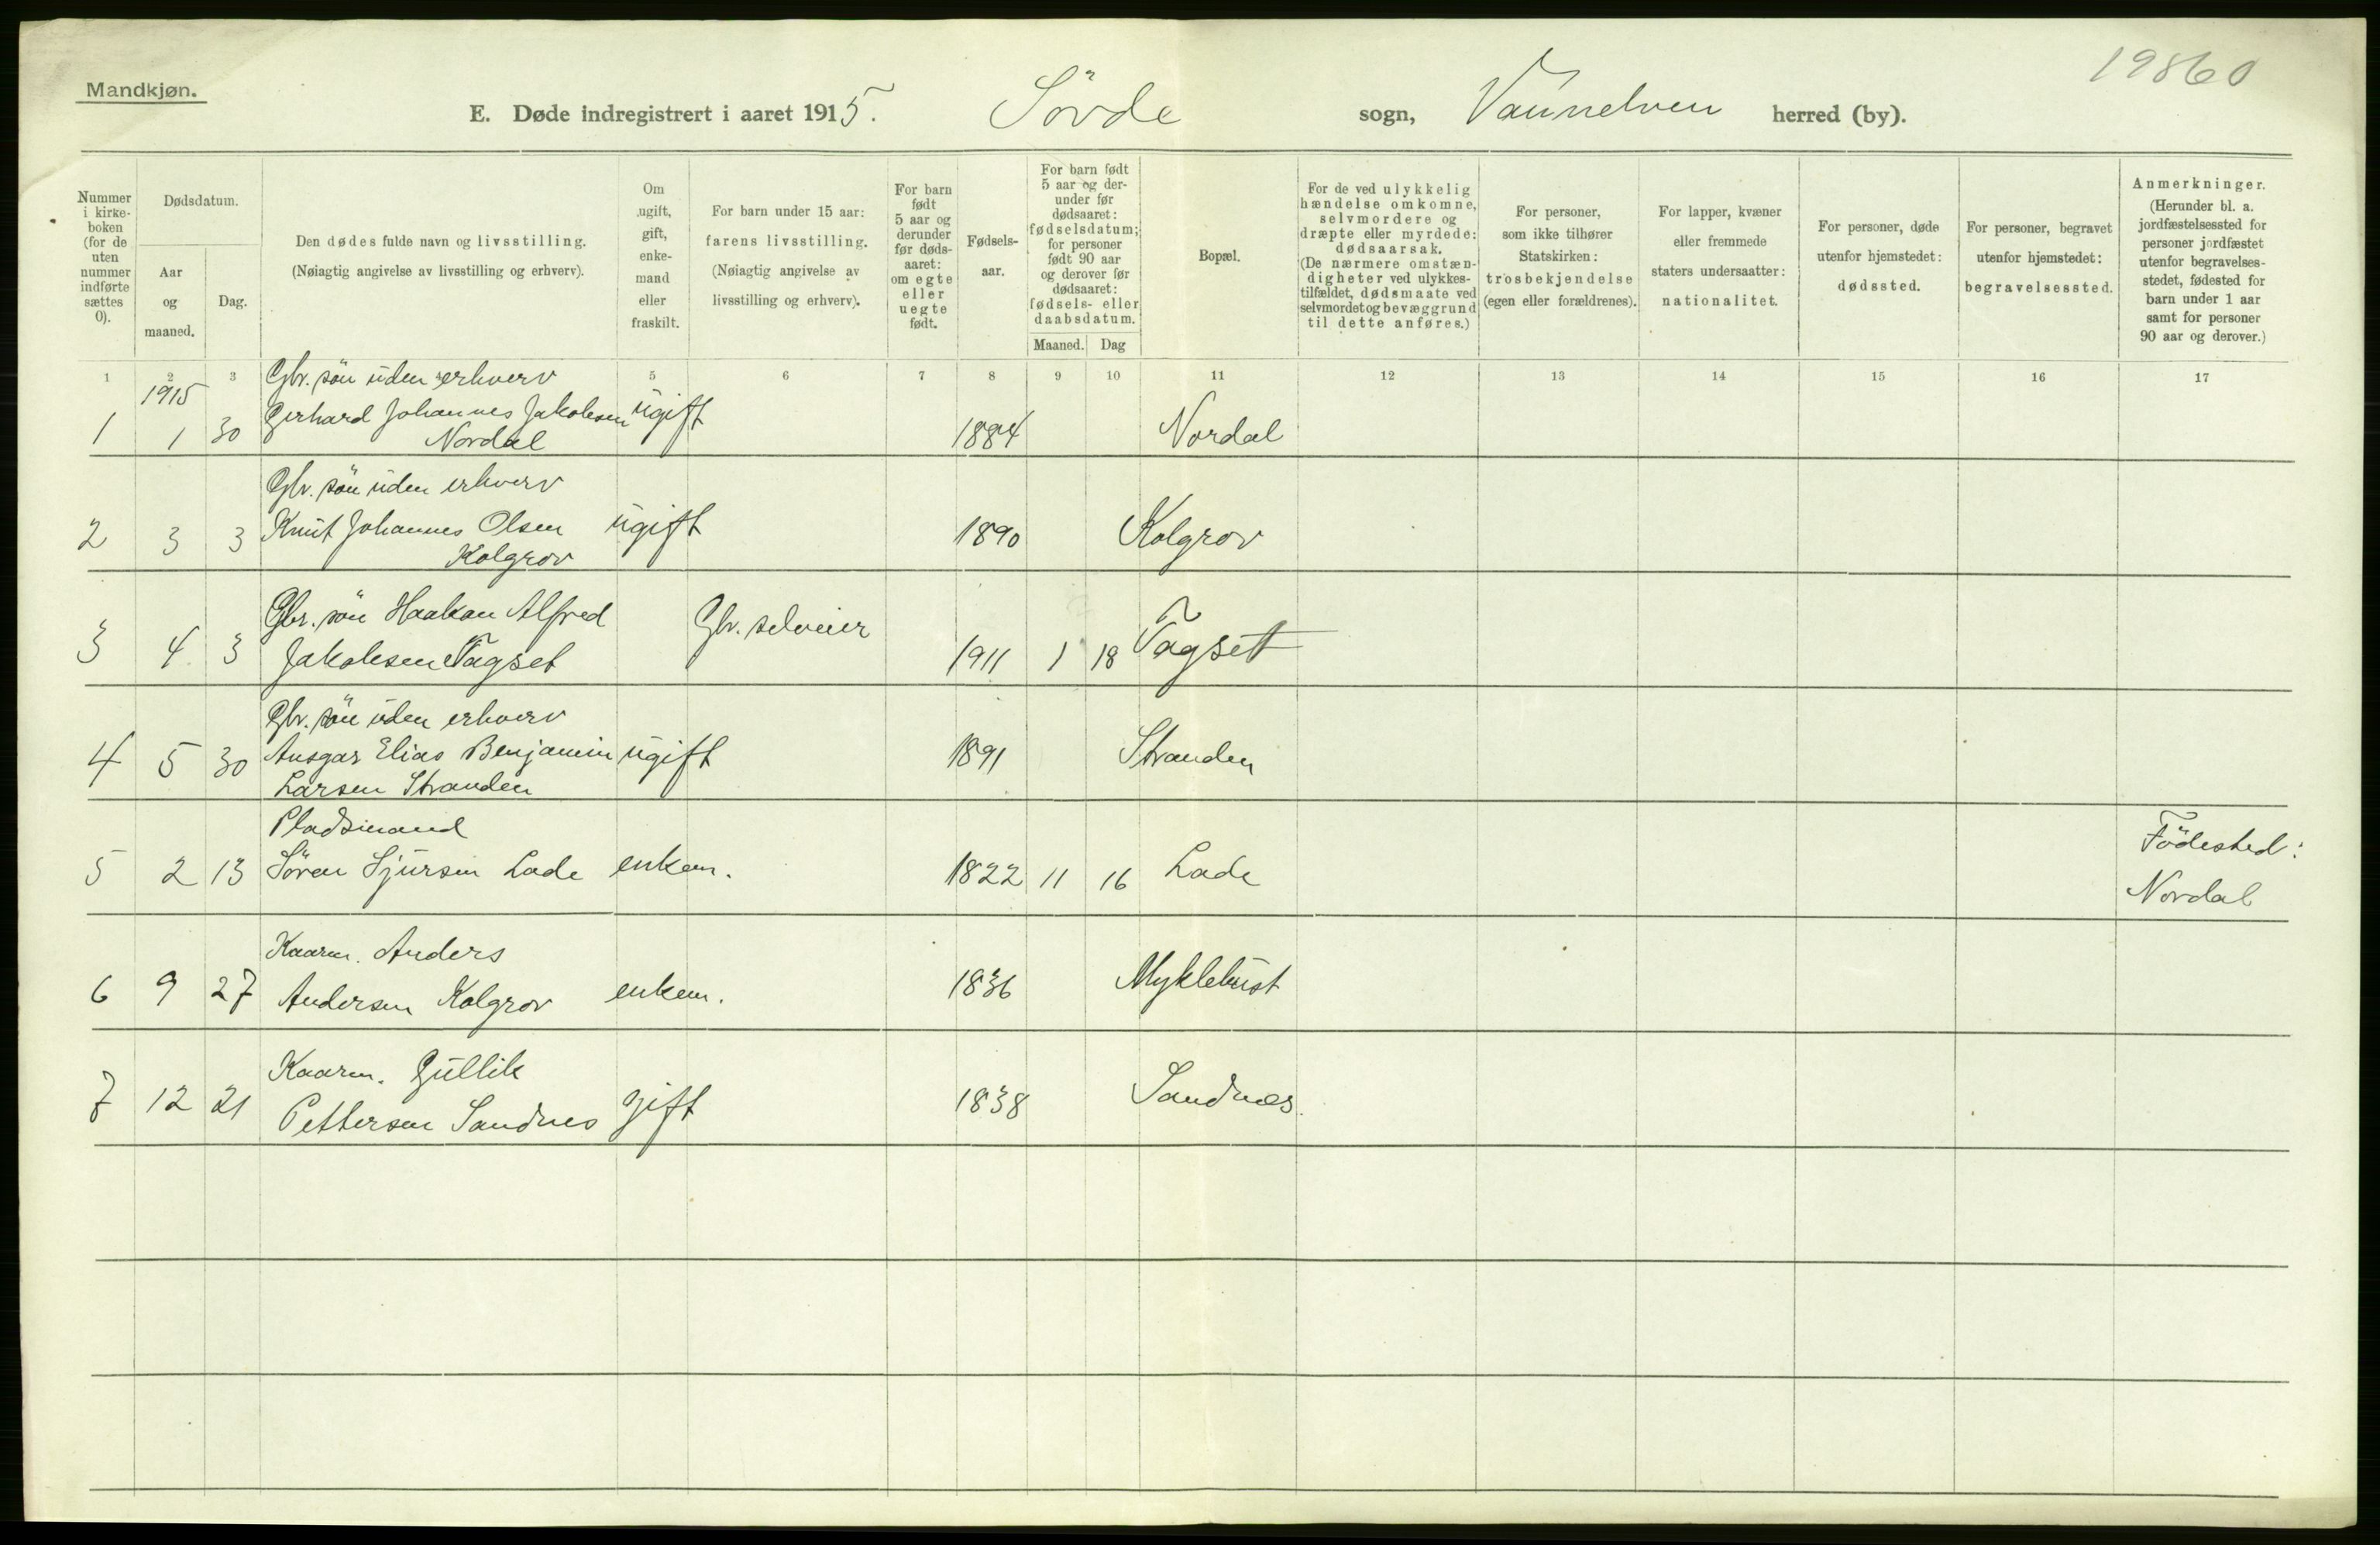 19860
Mandkjøn.
E. Døde indregistrert i aaret 1915. Sövde sogn, Vannelven herred (by).
Nummer i kirkeboken (for de uten nummer indførte sættes 0).
Dødsdatum.
Aar og maaned.
Dag.
Den dødes fulde navn og livsstilling.
(Nøiagtig angivelse av livsstilling og erhverv).
Om ugift, gift, enkemand eller fraskilt.
For barn under 15 aar: farens livsstilling. (Nøiagtig angivelse av livsstilling og erhverv).
For barn født 5 aar og derunder før dødsaaret: om egte eller uegte født.
Fødselsaar.
For barn født 5 aar og derunder før dødsaaret: fødselsdatum; for personer født 90 aar og derover før dødsaaret: fødsels- eller daabsdatum.
Maaned. Dag
Bopæl.
For de ved ulykkelig hændelse omkomne, selvmordere og dræpte eller myrdede: dødsaarsak. (De nærmere omstændigheter ved ulykkestilfældet, dødsmaate ved selvmordet og bevæggrund til dette anføres.)
For personer, som ikke tilhører Statskirken: trosbekjendelse (egen eller forældrenes).
For lapper, kvæner eller fremmede staters undersaatter: nationalitet.
For personer, døde utenfor hjemstedet: dødssted.
For personer, begravet utenfor hjemstedet: begravelsessted.
Anmerkninger. (Herunder bl. a. jordfæstelsessted for personer jordfæstet utenfor begravelsesstedet, fødested for barn under 1 aar samt for personer 90 aar og derover.)
1 2 3 4 5 6 7 8 9 10 11 12 13 14 15 16 17
1915
Gbr. sön uden erhverv
1 1 30 Gerhard Johannes Jakobsen ugift 1884 Nordal
Nordal
Gbr. sön uden erhverv
2 3 3 Knut Johannes Olsen ugift 1890 Kolgrov
Kolgrov
Gbr. sön Haakon Alfred Gbr. selveier
3 4 3 Jakobsen Vagset 1911 1 18 Vagset
Gbr. sön uden erhverv
4 5 30 Ansgar Elias Benjamin ugift 1891 Stranden
Larsen Stranden
Pladsmand
5 2 13 Sören Sjursen Lade enkem. 1822 11 16 Lade Födested:
Nordal
Kaarm. Anders
6 9 27 Andersen Kolgrov enkem. 1836 Myklebust
Kaarm. Gullik
7 12 21 Pettersen Sandnes gift 1838 Sandnes